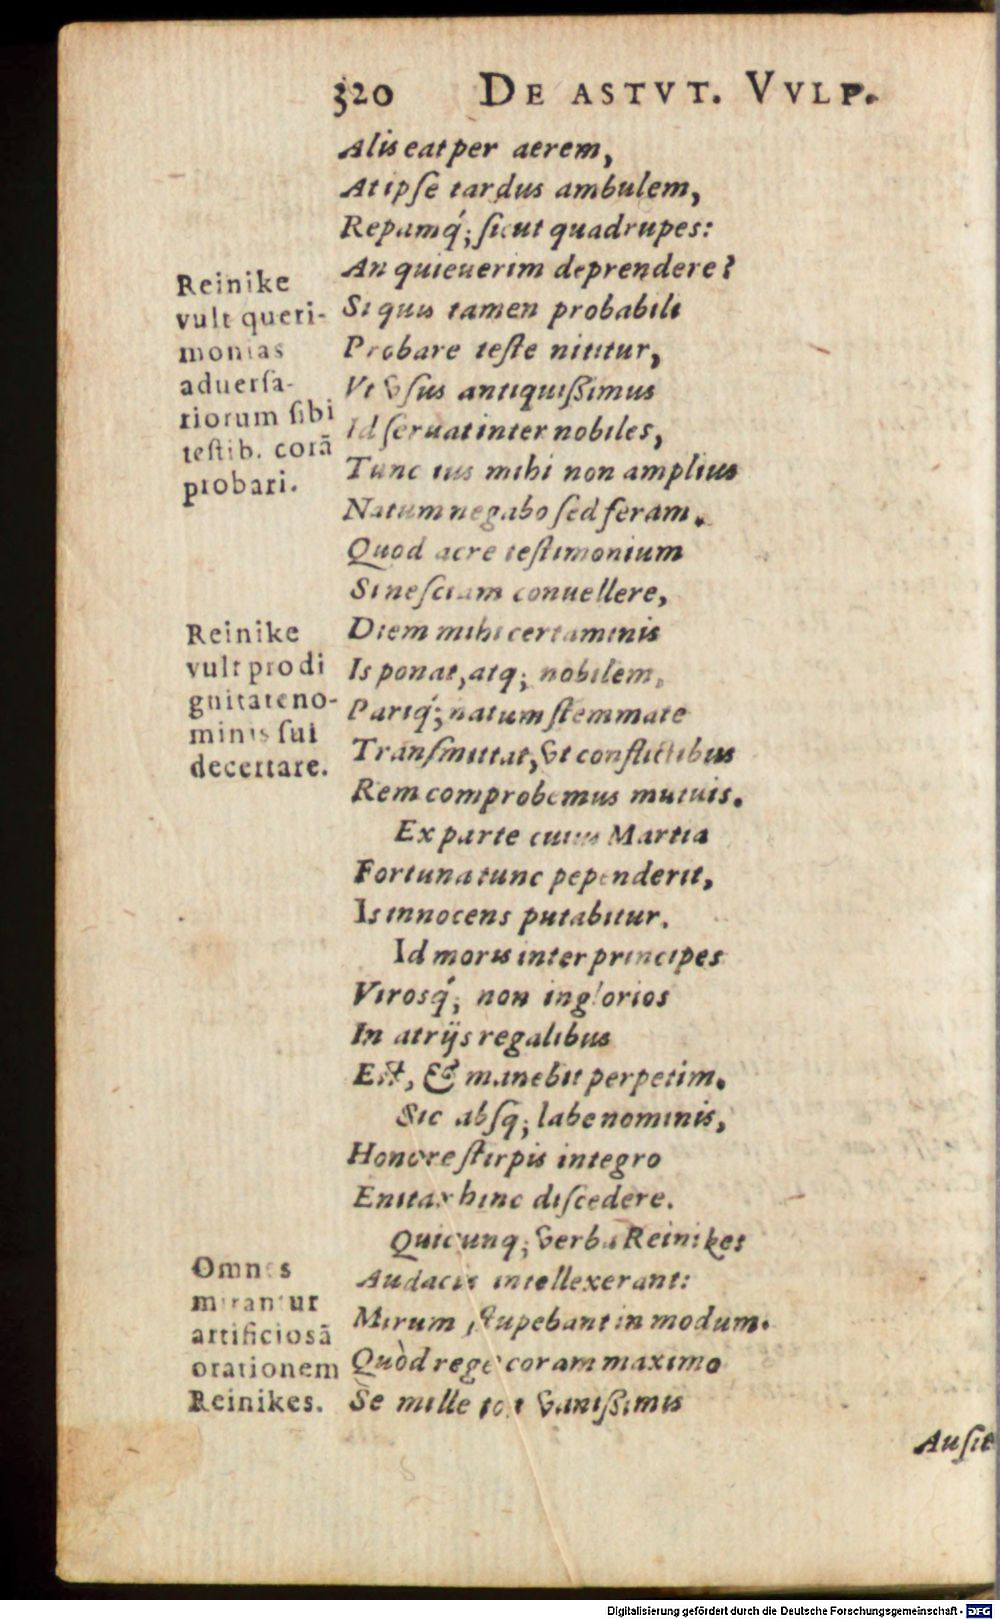 320 DE ASTVT. VVLP.
Alis eat per aerem,
At ipſe tardus ambulem,
Repamq́; ſicut quadrupes:
An quieuerim deprendere?
Si quis tamen probabili
Probare teſte nititur,
Vt vſus antiquißimus
Id ſeruat inter nobiles,
Tunc ius mihi non amplius
Natum negabo ſed feram.
Quod acre teſtimonium
Si neſciam conuellere,
Diem mihi certaminis
Is ponat, atq; nobilem,
Pariq́; natum ſtemmate
Tranſmittat, vt conflictibus
Rem comprobemus mutuis.
Ex parte cuius Martia
Fortuna tunc pependerit,
Is innocens putabitur.
Id moris inter principes
Virosq́; non inglorios
In atrijs regalibus
Eſt, & manebit perpetim.
Sic abſq; labe nominis,
Honore ſtirpis integro
Enitar hinc diſcedere.
Quicunq; verba Reinikes
Audacis intellexerant:
Mirum ſtupebant in modum.
Quòd rege coram maximo
Se mille tot vanißimis
Auſit
Reinike
vult queri-
monias
aduerſa-
riorum ſibi
teſtib. corā
probari.
Reinike
vult pro di
gnitate no-
minis ſui
decertare.
Omnes
mirantur
artificiosā
orationem
Reinikes.
Digitalisierung gefördert durch die Deutsche Forschungsgemeinschaft - DFG